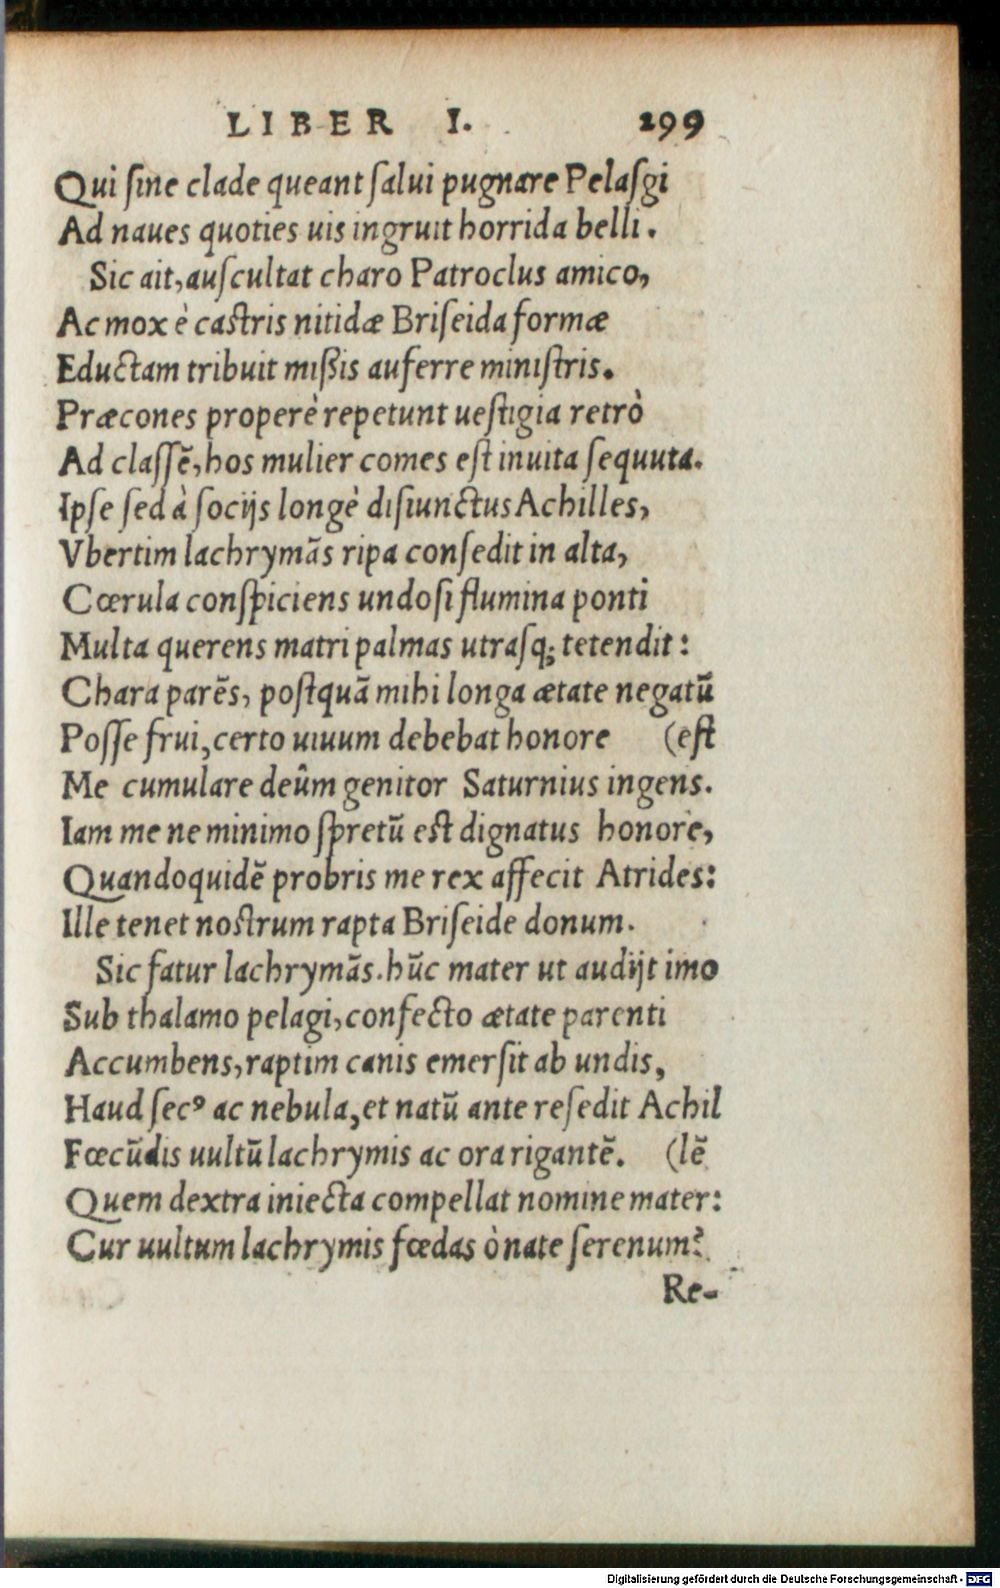 LIBER I. 299
Qui ſine clade queant ſalui pugnare Pelaſgi
Ad naues quoties uis ingruit horrida belli.
Sic ait, auſcultat charo Patroclus amico,
Ac mox è caſtris nitidæ Briſeida formæ
Eductam tribuit mißis auferre miniſtris.
Præcones properè repetunt ueſtigia retrò
Ad claſſē, hos mulier comes eſt inuita ſequuta.
Ipſe ſed à ſocijs longè diſiunctus Achilles,
Vbertim lachrymās ripa conſedit in alta,
Cœrula conſpiciens undoſi flumina ponti
Multa querens matri palmas utraſq; tetendit:
Chara parēs, poſtquā mihi longa ætate negatū
Poſſe frui, certo uiuum debebat honore (eſt
Me cumulare deûm genitor Saturnius ingens.
Iam me ne minimo ſpretū eſt dignatus honore,
Quandoquidē probris me rex affecit Atrides:
Ille tenet noſtrum rapta Briſeide donum.
Sic fatur lachrymās. hūc mater ut audijt imo
Sub thalamo pelagi, confecto ætate parenti
Accumbens, raptim canis emerſit ab undis,
Haud ſecꝰ ac nebula, et natū ante reſedit Achil
Fœcūdis uultū lachrymis ac ora rigantē. (lē
Quem dextra iniecta compellat nomine mater:
Cur uultum lachrymis fœdas ò nate ſerenum?
Re-
Digitalisierung gefördert durch die Deutsche Forschungsgemeinschaft - DFG